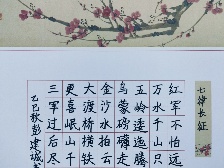 七律长征
红军不怕远
万水千山只
五岭逶迤腾
乌蒙磅礴走
金沙水拍云
大渡桥横铁
更喜岷山千
三军过后尽
乙巳秋彭建城书